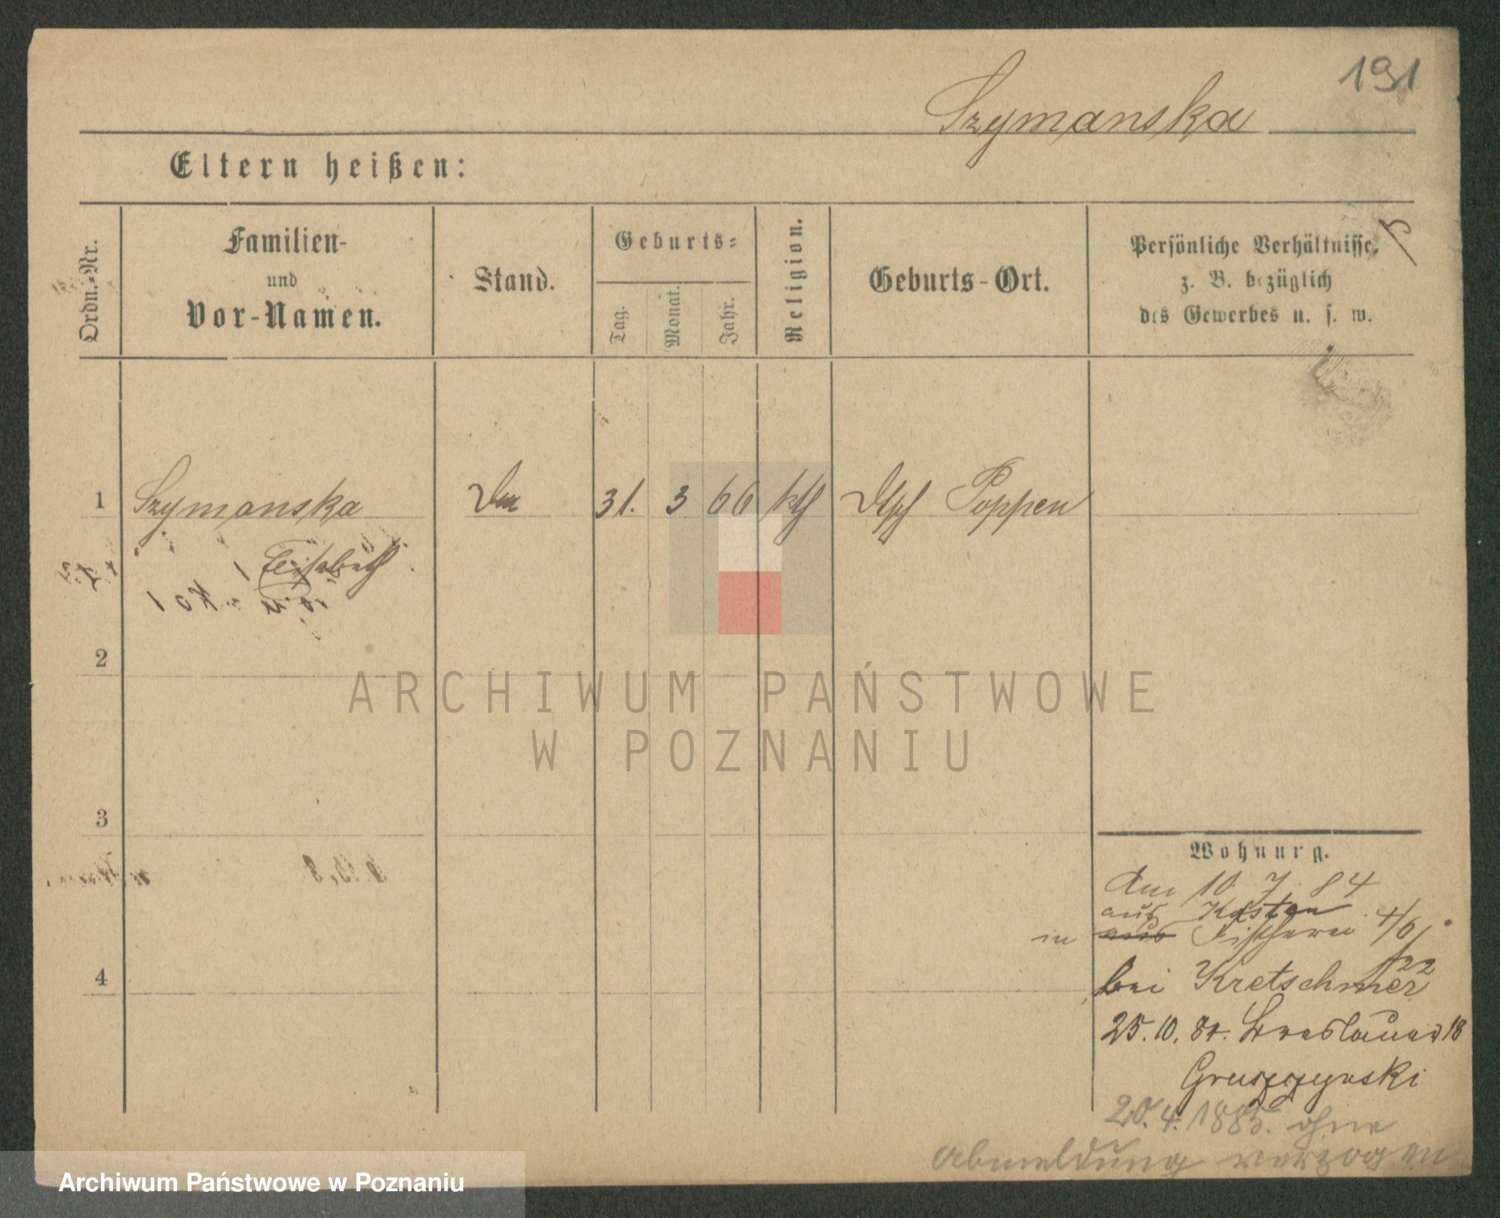 191
Szymanska
Eltern heißen:
Ordn.-Nr.
Familien-
und
Vor-Namen.
Stand.
Geburts-
Tag.
Monat.
Jahr.
Religion.
Geburts-Ort.
Persönliche Verhältnisse,
z. B. bezüglich
des Gewerbes u. s. w.
1 Szymanska 31. 3 66 kth Dtsch Poppen
Elisabeth
2
ARCHIWUM PAŃSTWOWE
W POZNANIU
3
Wohnung.
Am 10 7 84
aus Kosten
in aus Fischerei 4/6
bei Kretschmer
22
25. 10. 84. Breslauer 18
Gruszczynski
4
20. 4. 1885. ohne
Abmeldung verzogen
Archiwum Państwowe w Poznaniu